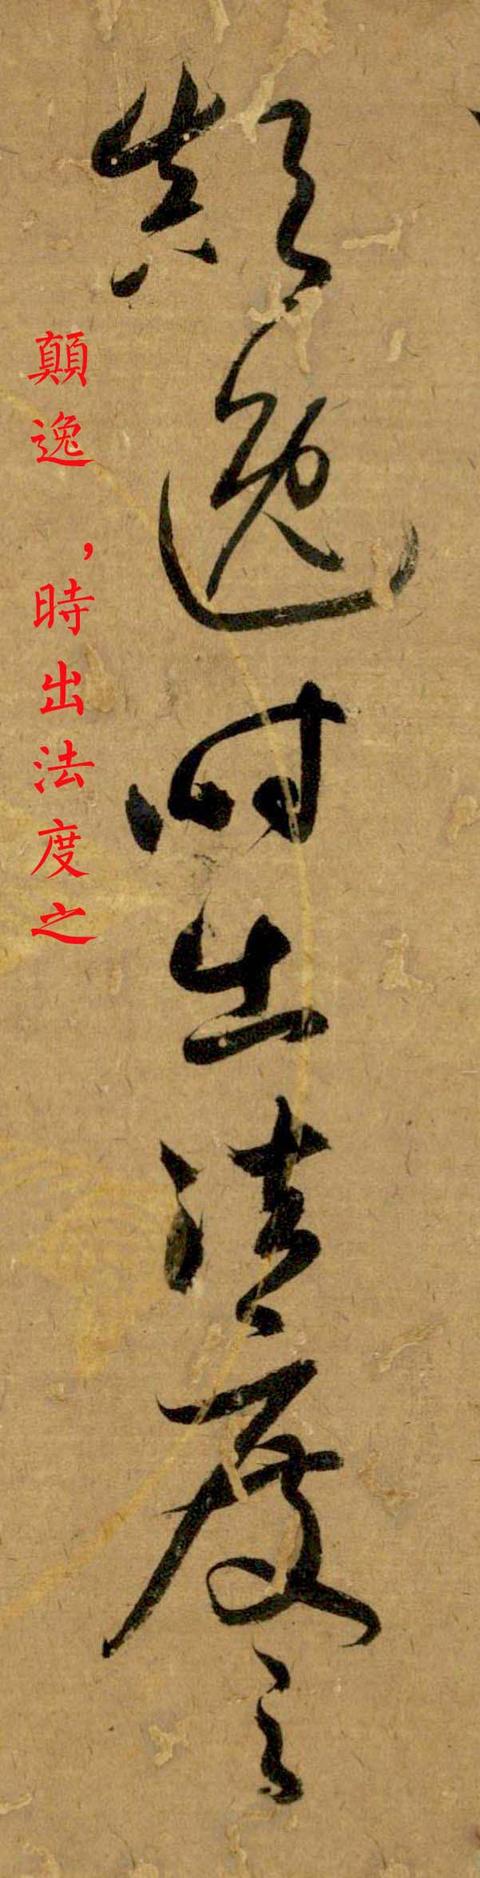 顛逸时出法度之
顛逸，時出法度之